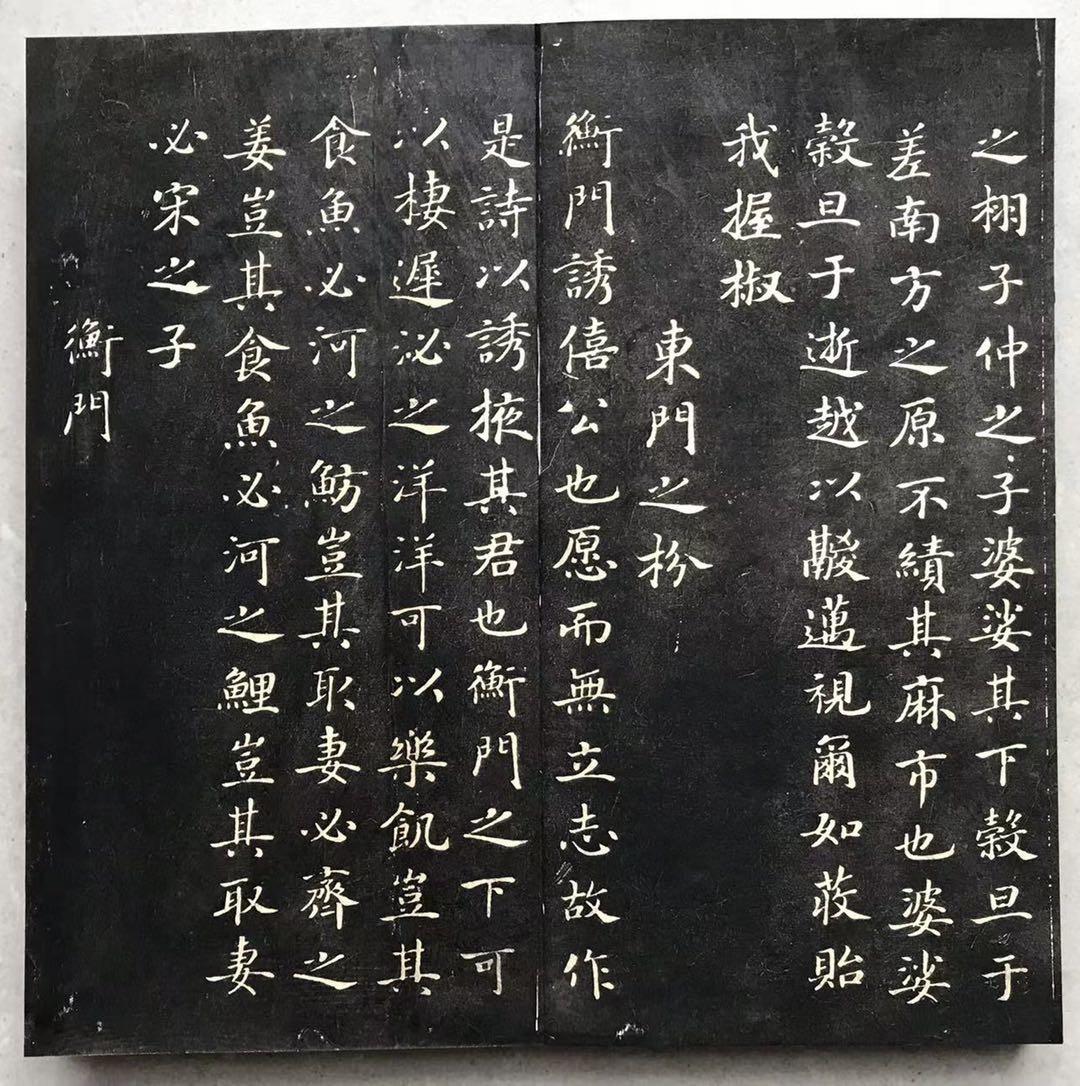 之栩子仲之子婆娑其下榖旦于
差南方之原不績其麻市也婆娑
榖旦于逝越以鬷邁視爾如荍貽
我握椒
東門之枌
衡門誘僖公也愿而無立志故作
是詩以誘掖其君也衡門之下可
以棲遲泌之洋洋可以樂飢豈其
食魚必河之魴豈其取妻必齊之
姜豈其食魚必河之鯉豈其取妻
必宋之子
衡門